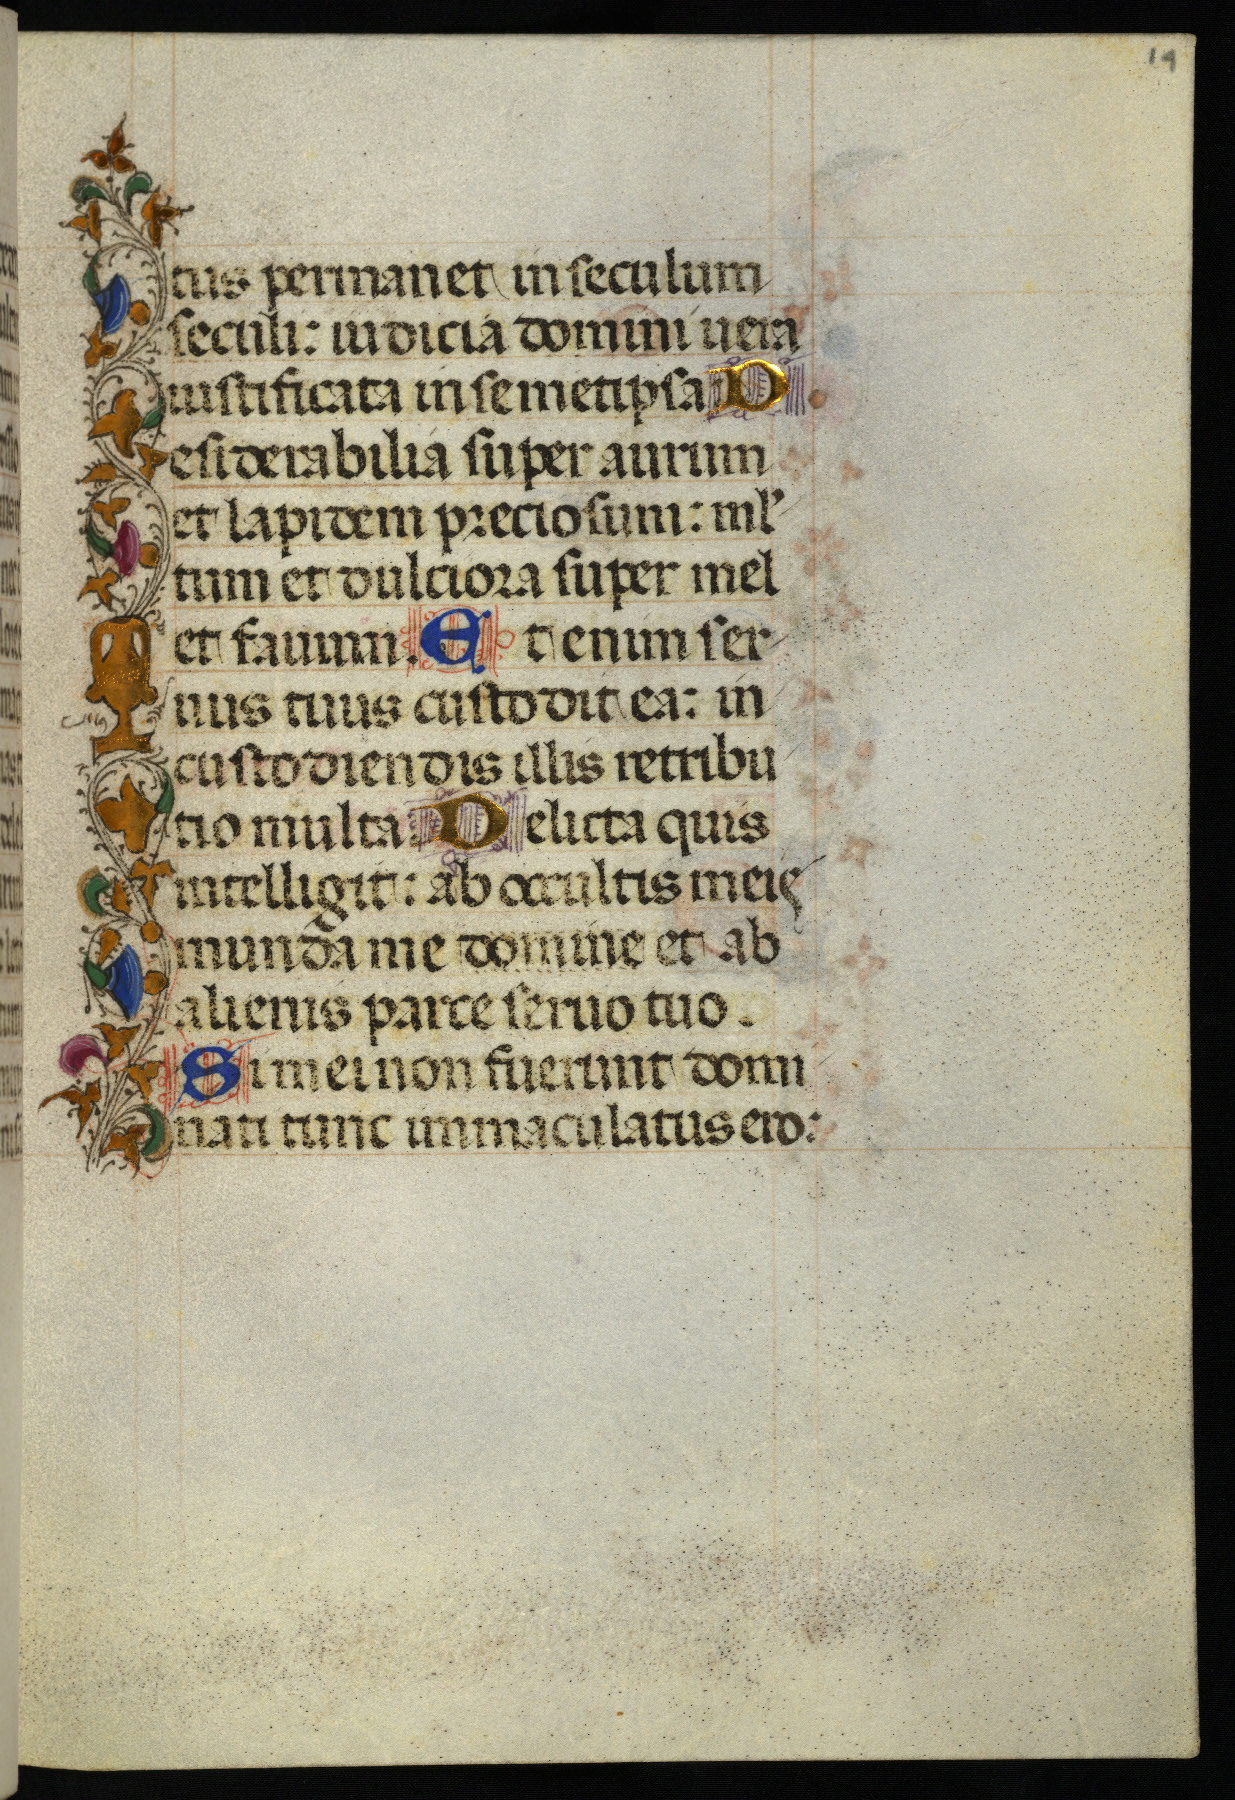 19
tus permanet in seculum
seculi: iudicia domini uera
iustificata in semetipsa D
esiderabilia super aurum
et lapidem preciosum: ml'
tum et dulciora super mel
et fauum. Et enim ser
uus tuus custodit ea: in
custodiendis illis retribu
tio multa. Delicta quis
intelligit: ab occultis meis
munda me domine et ab
alienis parce seruo tuo.
Si mei non fuerint domi
nati tunc immaculatus ero: